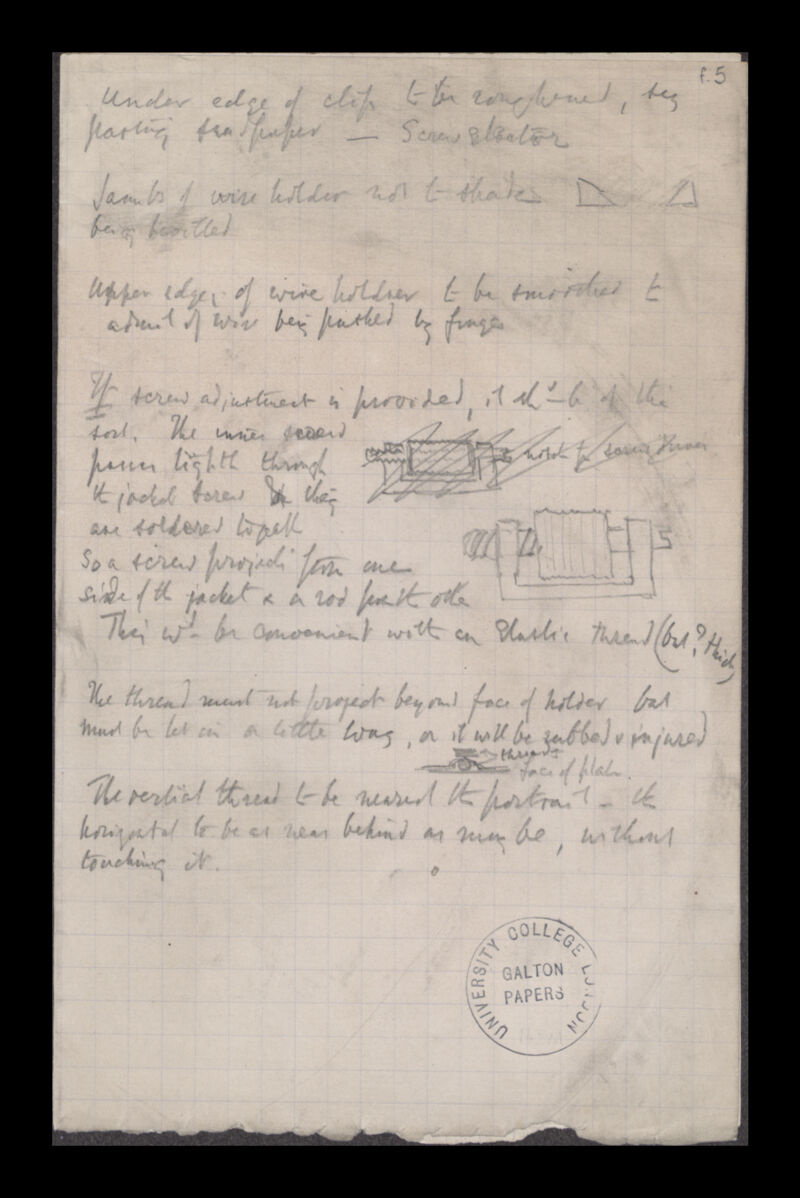 f.5
Under edge of clip to be roughened, say
pasting sandpaper — Screw
Jambs of wire holder not to shade
being bevilled
Upper edges of wire holder to be smoothed to
admit of wire being pushed by finger
If screw adjustment is provided, it shd be of this
sort. The inner screw
passes tightly through
the jacket screw & they
are soldered together
So a screw projects from one
side of the jacket & a rod from the other
holder for screw driver
This wd be convenient with an Elastic thread (but ? thick)
The thread must not project beyond face of holder but
must be let in a little way, or it will be rubbed & injured
thread
face of plate
The vertical thread to be nearest the portrait – the
horizontal to be as near behind as may be, without
touching it.
UNIVERSITY COLLEGE LONDON
GALTON
PAPERS